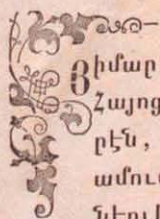 Յիմար
Հայոց
րէն,
ամու